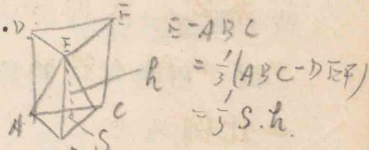 D
E
F
h
A
C
S
E-ABC
= 1/3(ABC-DEF)
= 1/3 S·h.